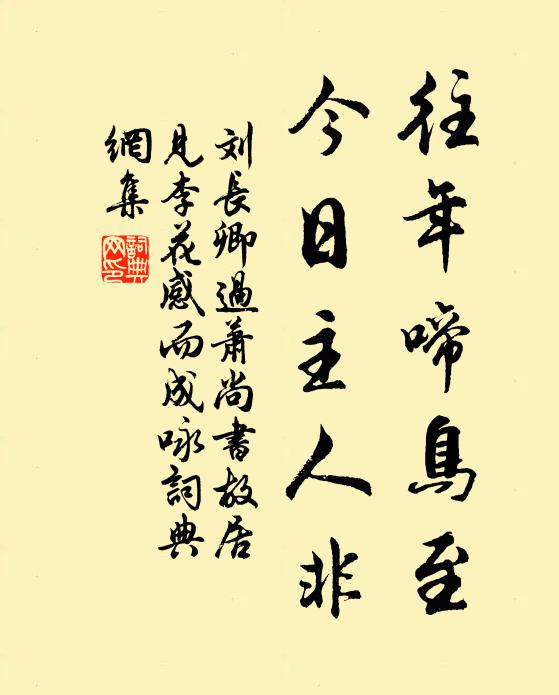 往年啼鳥至
今日主人非
刘長卿過蕭尚書故居
見李花感而成咏詞典
網集
詞典
网印